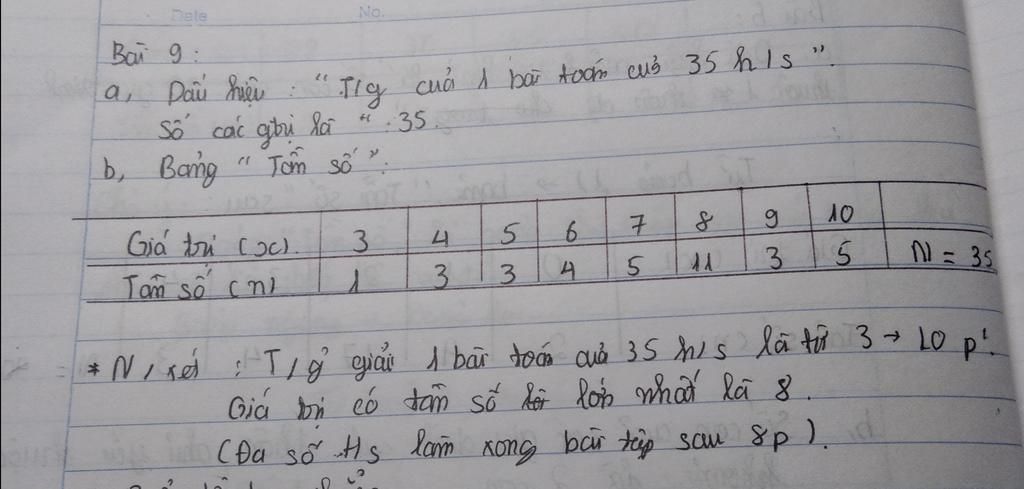 Date No.
Bài 9:
a, Dấu hiệu: "T/g của 1 bài toán của 35 h/s".
Số các gtrị là : 35.
b, Bảng "Tần số":
Giá trị (x). 3 4 5 6 7 8 9 10
Tần số (n) 1 3 3 4 5 11 3 5 N = 35
* N/xét: T/g giải 1 bài toán của 35 h/s là từ 3 → 10 p'.
Giá trị có tần số lớn nhất là 8.
(Đa số Hs làm xong bài tập sau 8p).